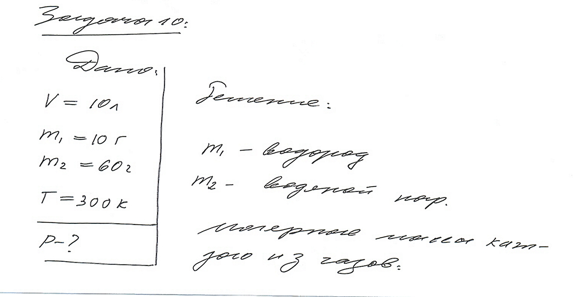 Задача 10:
Дано:
V = 10 л
m₁ = 10 г
m₂ = 60 г
T = 300 К
P - ?
Решение:
m₁ - водород
m₂ - водяной пар.
молярные масса каж-
дого из газов: